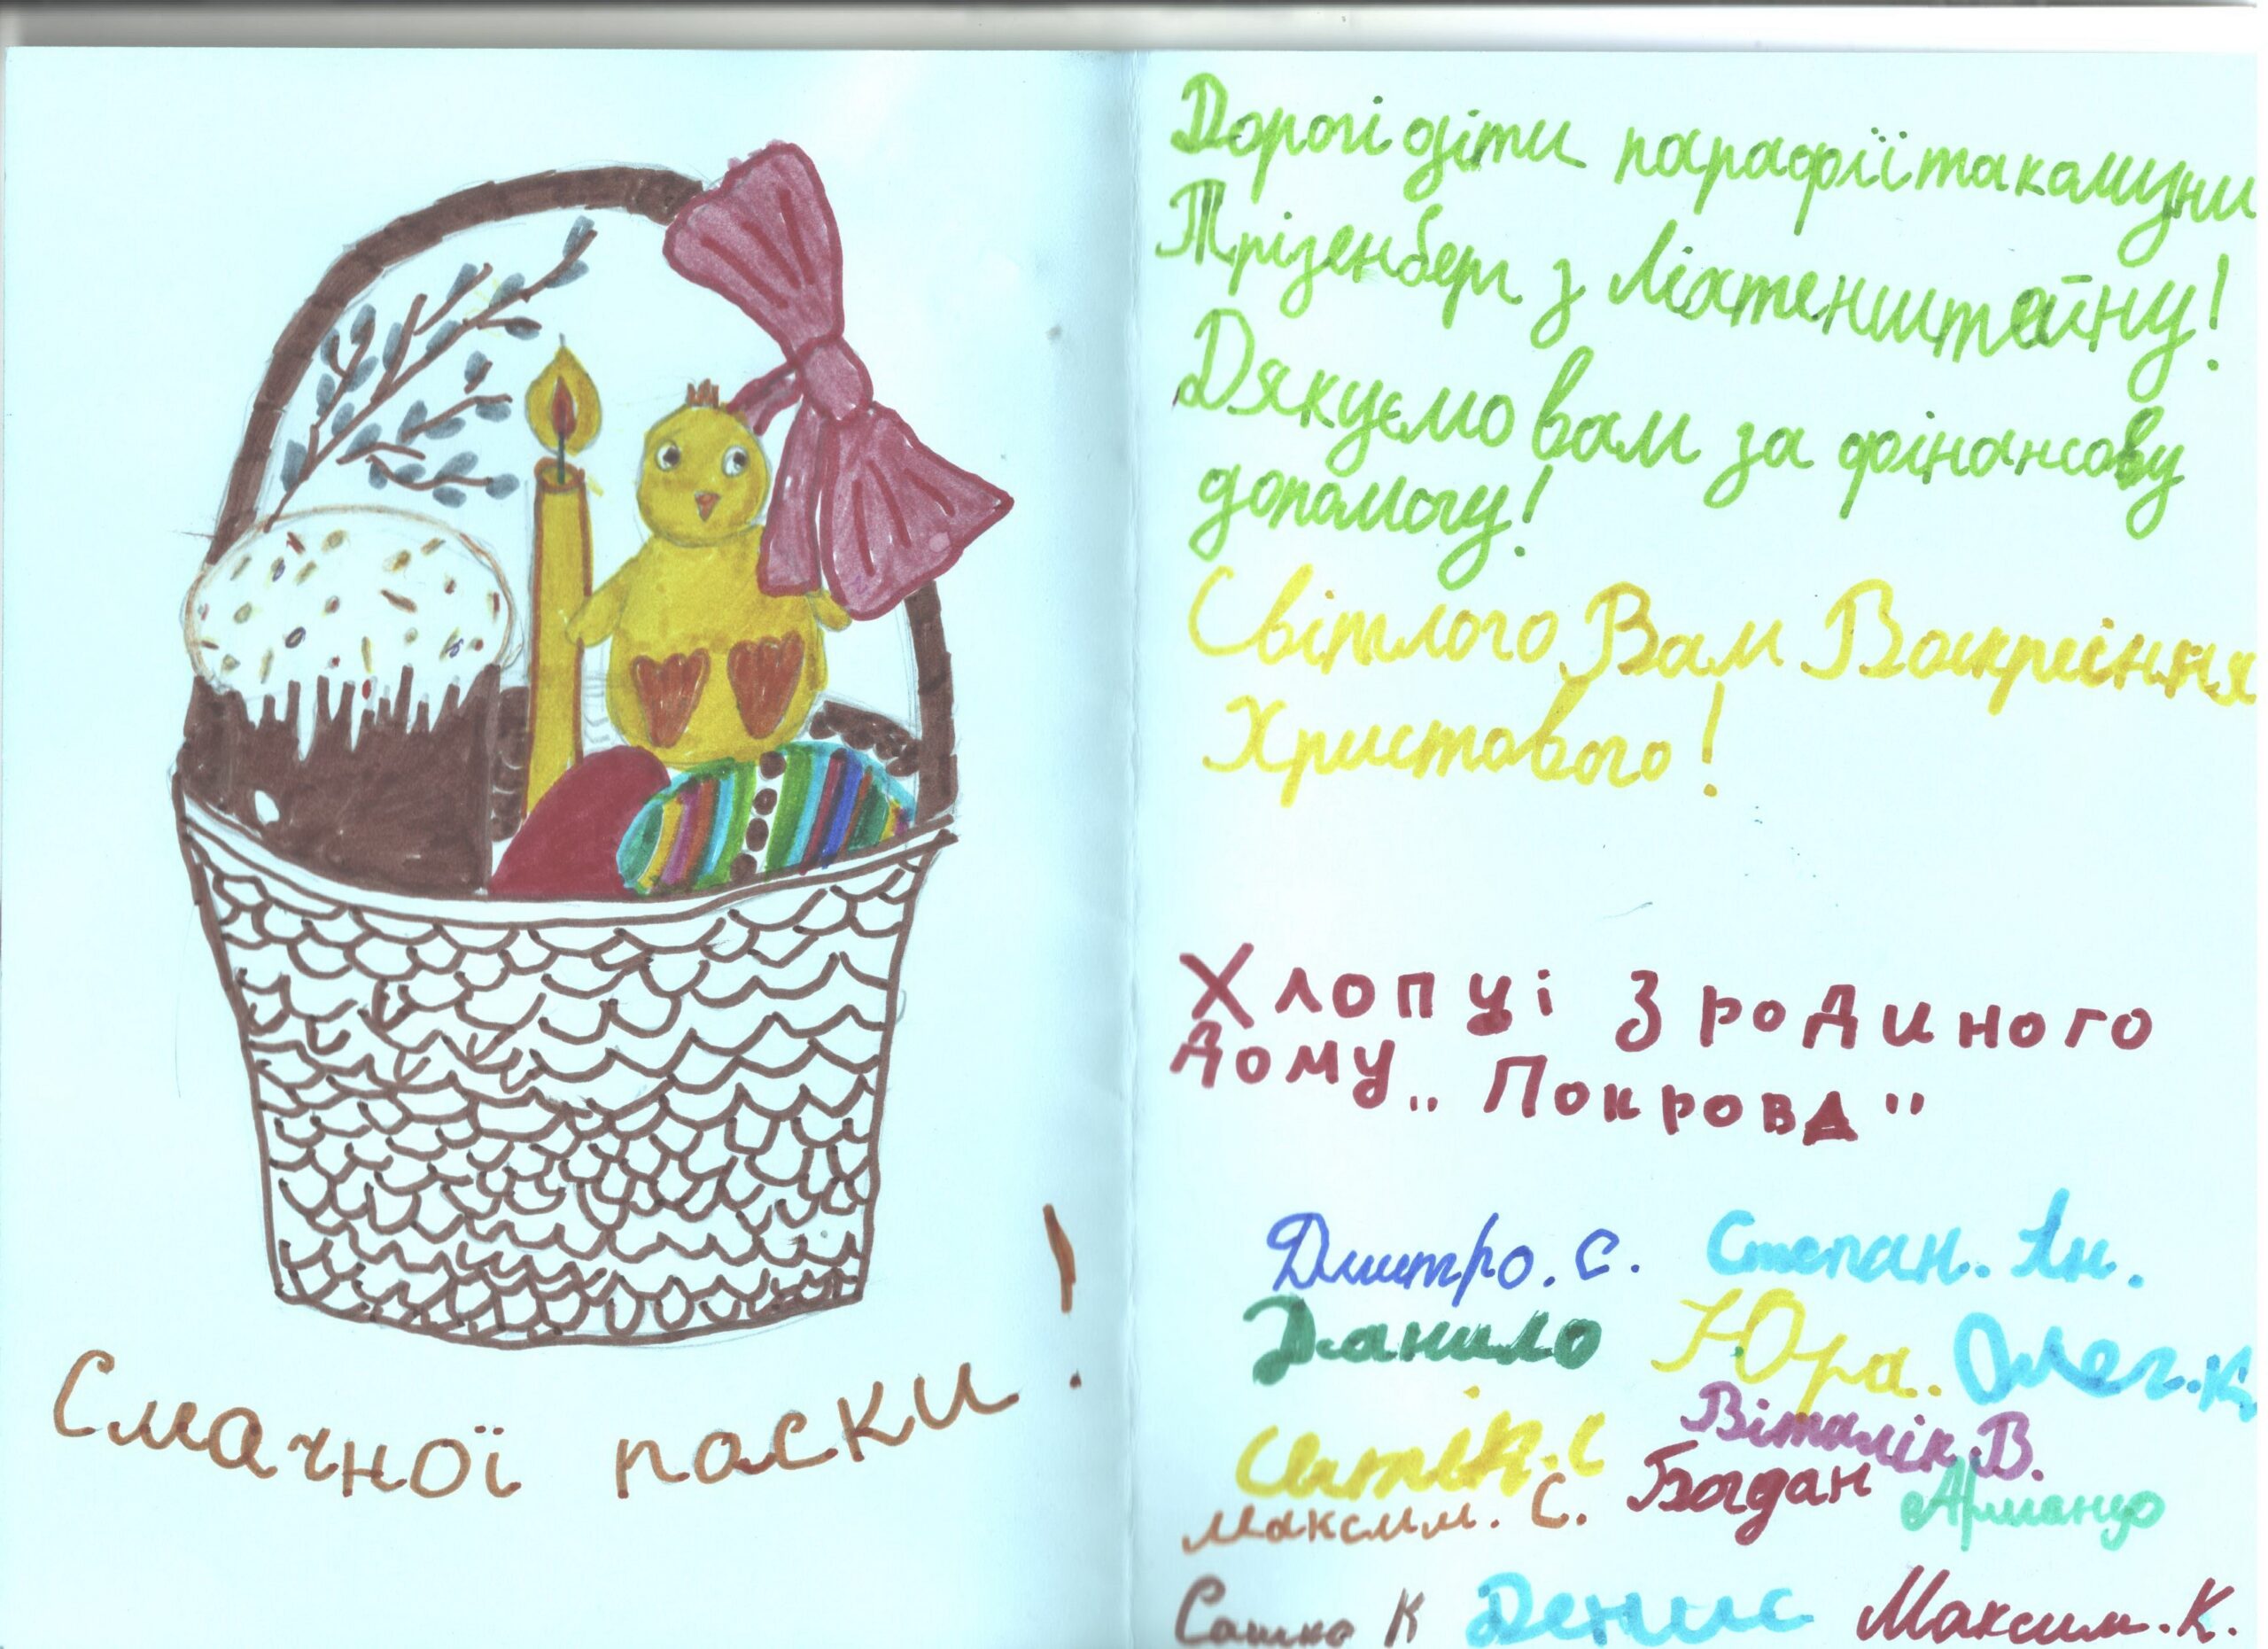 Смачної паски!
Дорогі діти парафії та комуни
Трізенберг з Ліхтенштайну!
Дякуємо вам за фінансову
допомогу!
Світлого Вам Воскресіння
Христового!
Хлопці з родиного
дому „Покрова"
Дмитро. С. Степан. Ян.
Данило Юра. Олег. К
Святік. С Віталік В.
Максим. С. Богдан Армандо
Сашко К Денис Максим. К.